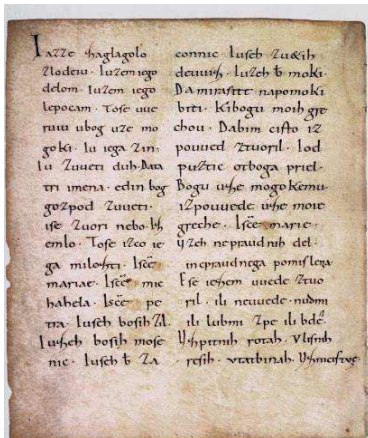 Iazze zaglagolo
zlodeiu. Iuzem iego
delom. Iuzem iego
lepocam. Tose uue
ruiu ubog uze mo
goki. Iu iega zin.
Iu zuueti duh. Data
tri imena. edin bog
gozpod zuueti.
ise zuori nebo. Iz
emlo. Tose izco ie
ga milozti. Isce
mariae. Isce mic
hahela. Isce pe
tra. Iuseh bosih zil.
Iuzeh bosih mose
nic. Iuseh b za
connic. Iuseh zuetih
deuuiz. Iuzeh b moki
Da mirastte napomoki
biti. Kibogu moih gre
chou. Dabim cisto iz
pouued ztuoril. Iod
puztic otboga priel.
Bogu uze mogokemu
izpouuede uze moie
greche. Isce marie.
Vzeh nepraudnih del.
inepraudnega pomislera.
Ese iezem uuede ztuo
ril. ili neuuede. nudmi
ili lubmi zpe ili bde.
Vzpitnih rotah. Vlisnih
resih. Vtatbinah. Vznicistue.